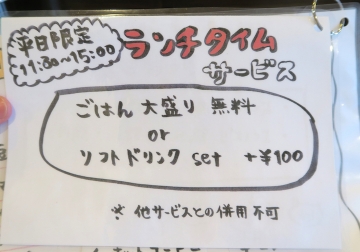 平日限定
11:30~15:00
ランチタイム
サービス
ごはん 大盛り 無料
or
ソフトドリンク set +¥100
※ 他サービスとの併用不可